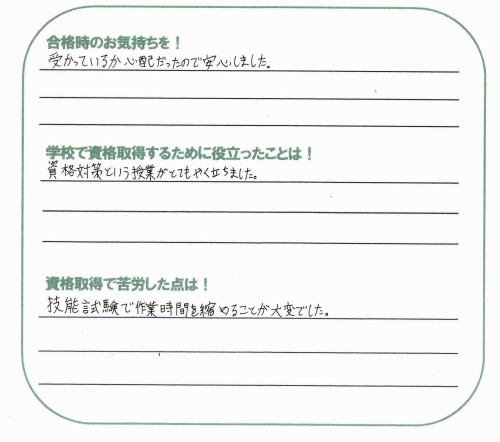 合格時のお気持ちを！
受かっているか心配だったので安心しました。
学校で資格取得するために役立ったことは！
資格対策という授業がとてもやく立ちました。
資格取得で苦労した点は！
技能試験で作業時間を縮めることが大変でした。